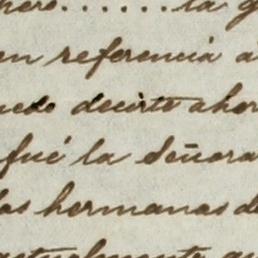 la
en referencia a
decirte ahor
fué la Señora
las hermanas de